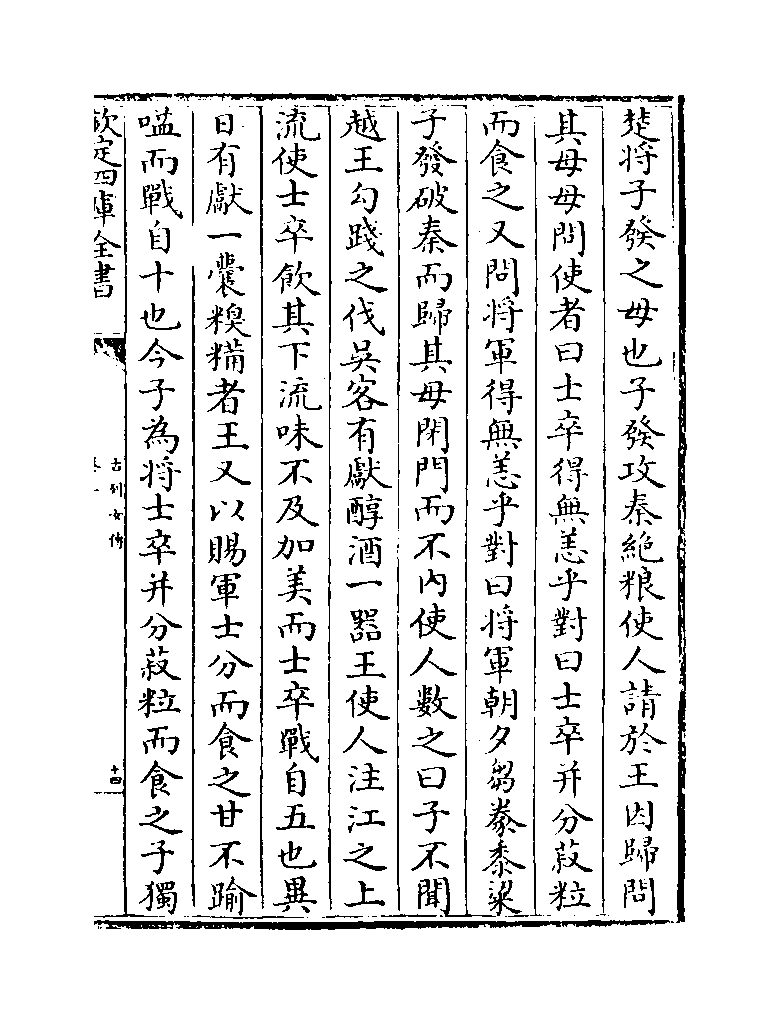 楚將子發之母也子發攻秦絶粮使人請於王因歸問
其母母問使者曰士卒得無恙乎對曰士卒并分菽粒
而食之又問將軍得無恙乎對曰將軍朝夕芻豢黍粱
子發破秦而歸其母閉門而不内使人數之曰子不聞
越王勾踐之伐吳客有獻醇酒一器王使人注江之上
流使士卒飲其下流味不及加美而士卒戰自五也異
日有獻一囊糗糒者王又以賜軍士分而食之甘不踰
嗌而戰自十也今子為將士卒并分菽粒而食之子獨
欽定四庫全書
古列女傳
卷一
十四